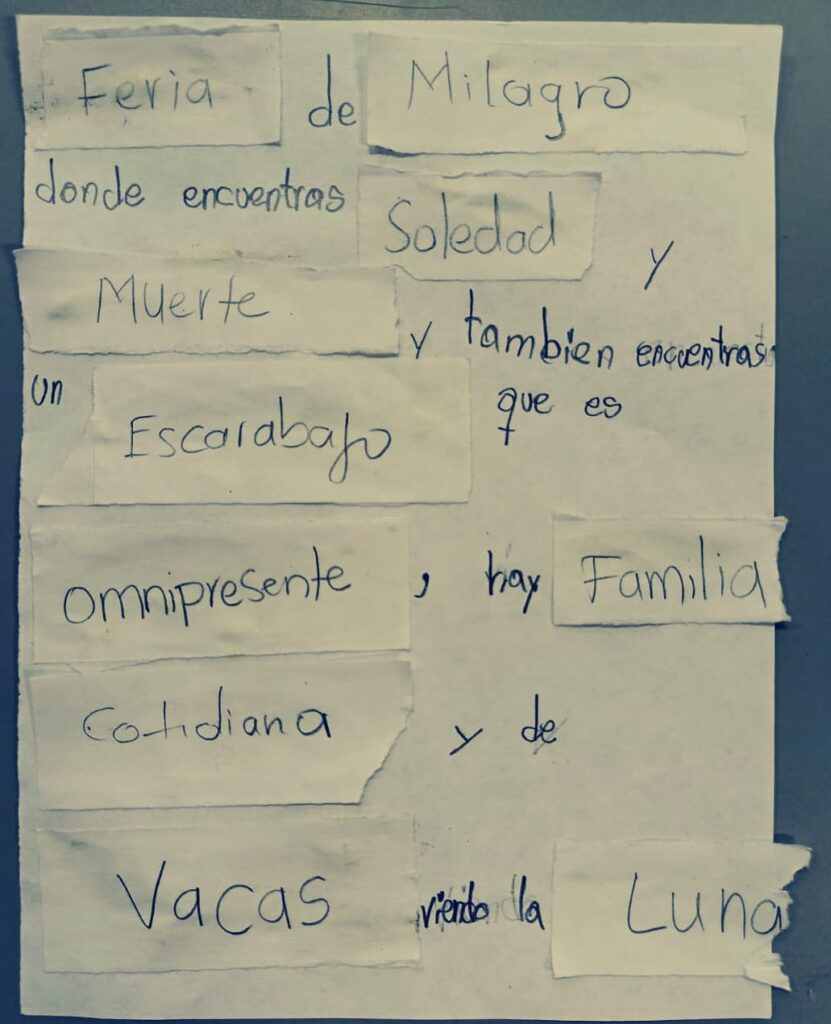 Feria de Milagro
donde encuentras Soledad y
Muerte y tambien encuentras
un Escarabajo que es
omnipresente, hay Familia
Cotidiana y de
Vacas viendo la Luna